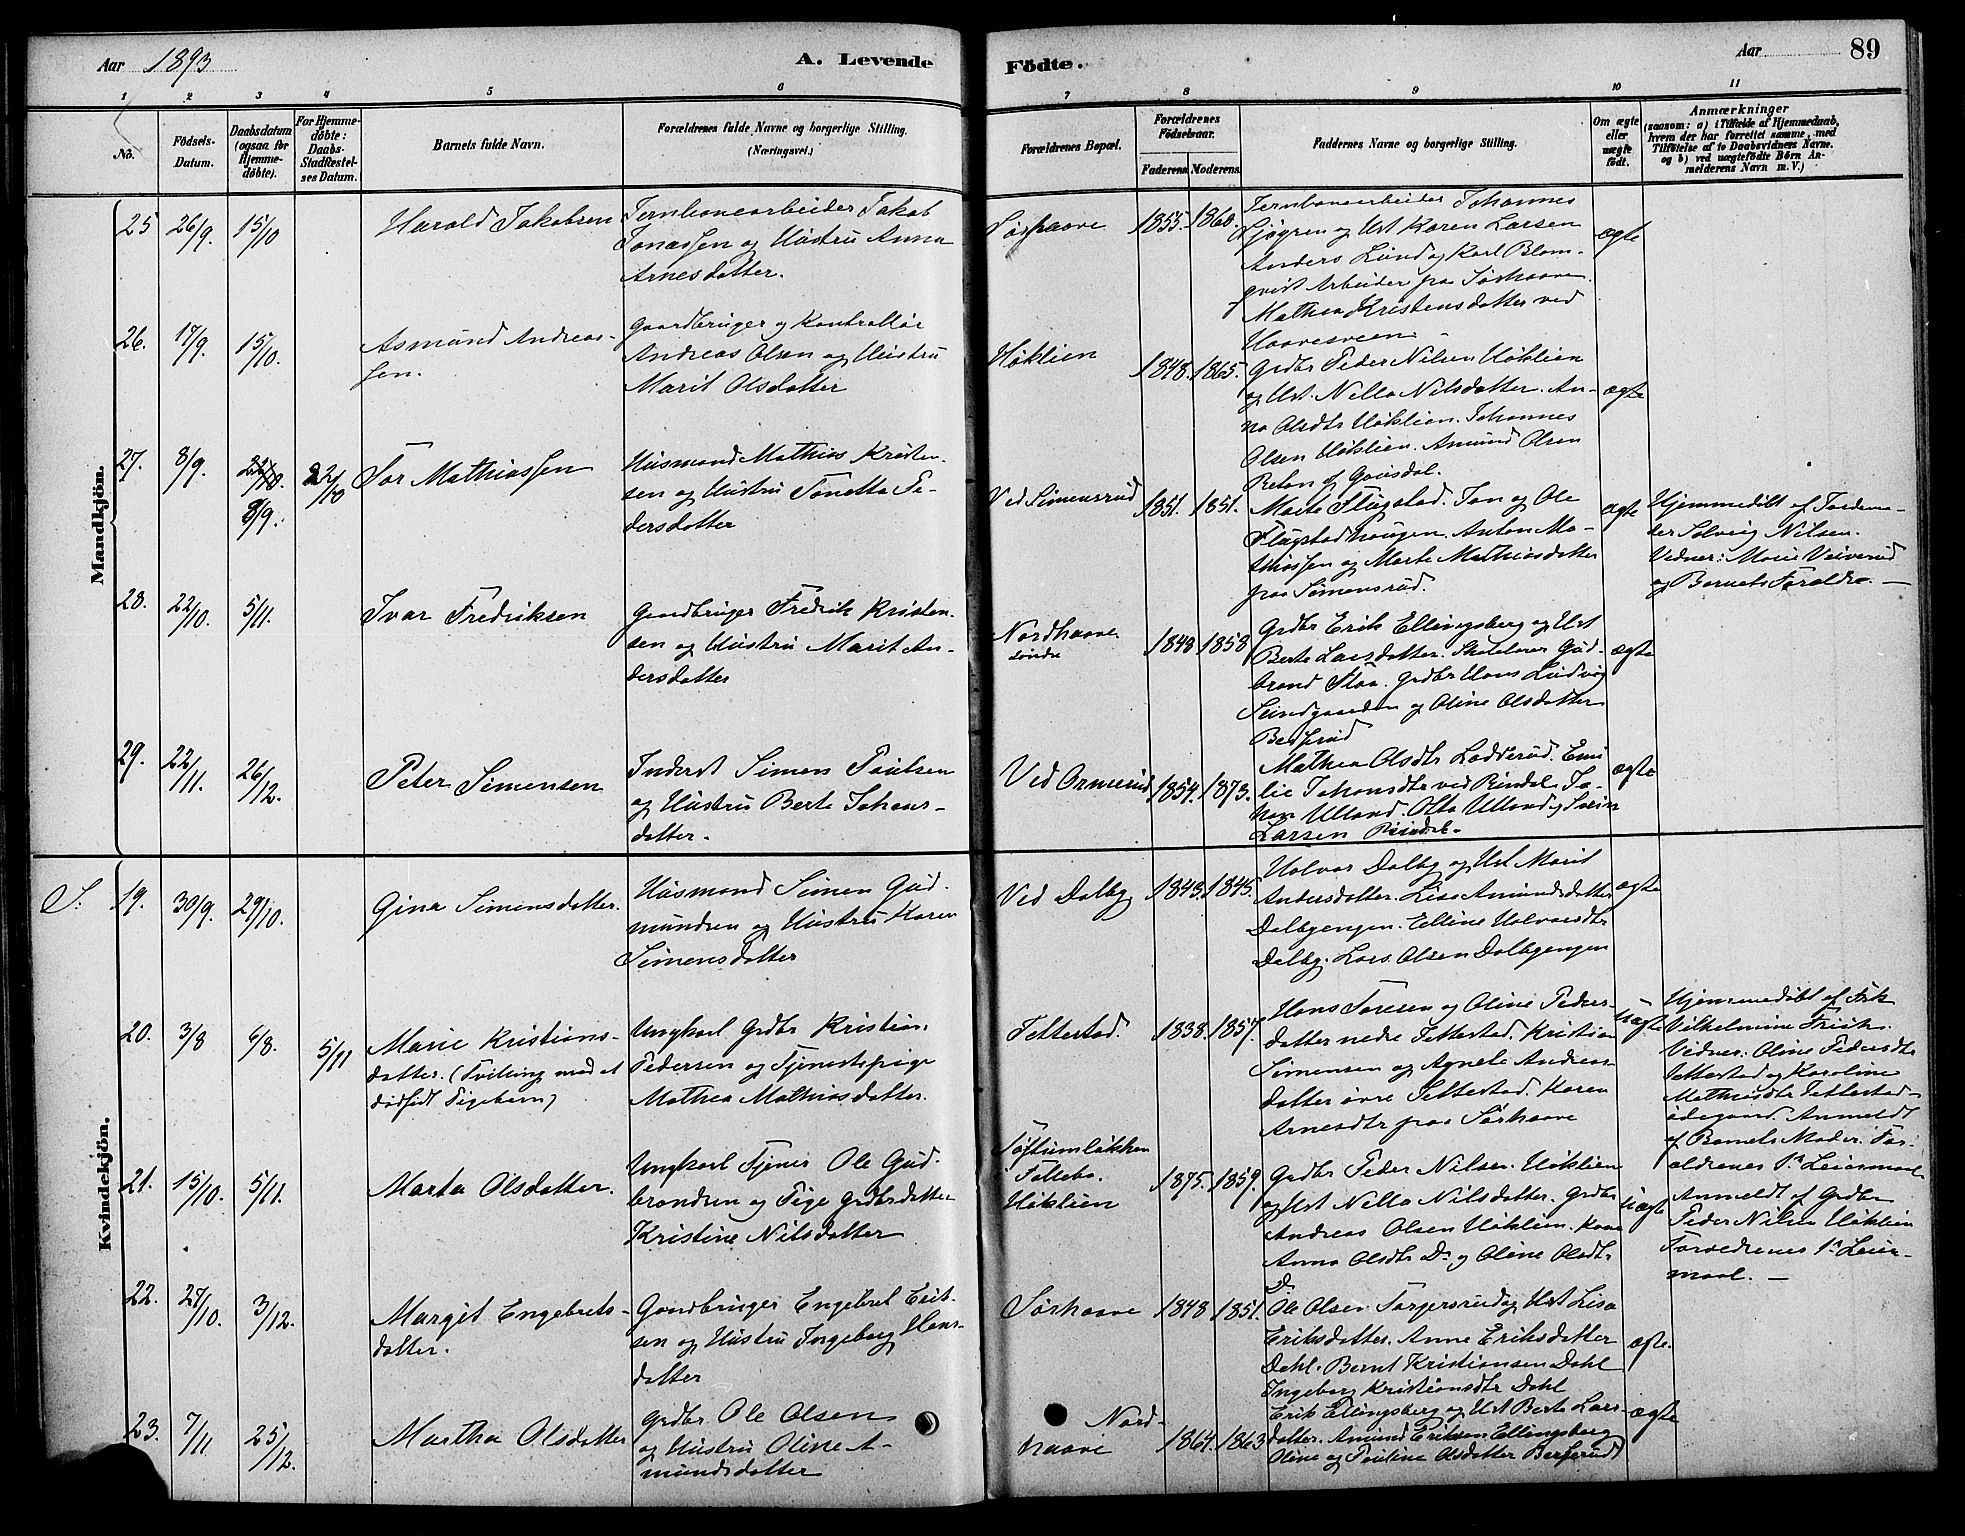 Aar 1893
A. Levende
Fødte.
Aar
89
1
2
3
4
5
6
7
8
9
10
11
No.
Fødsels-
Datum.
Daabsdatum
(ogsaa for
Hjemme-
døbte).
For Hjemme-
døbte:
Daabs-
Stadfæstel-
ses Datum.
Barnets fulde Navn.
Forældrenes fulde Navne og borgerlige Stilling.
(Næringsvei.)
Forældrenes Bopæl.
Forældrenes
Fødselsaar.
Faderens.
Moderens.
Faddernes Navne og borgerlige Stilling.
Om ægte
eller
uægte
født.
Anmærkninger
(saasom: a) i Tilfælde af Hjemmedaab,
hvem der har forrettet samme, med
Tilføielse af to Daabsvidners Navne.
og b) ved uægtefødte Børn An-
melderens Navn m. V.)
Mandkjön.
25
26/9.
15/10
Harald Jakobsen
Jernbanearbeider Jakob
Jonassen og Hustru Anna
Arnesdatter.
Sørhaave
1855.
1860.
Jernbanearbeider Johannes
Sjøgren og Ust Karen Larsen
Anders Lund og Karl Blom-
qvist Arbeider paa Sørhaave
Mathea Kristensdatter ved
Haavesveen
ægte
26.
17/9.
15/10.
Asmund Andreas-
sen.
Gaardbruger og Kontrollør
Andreas Olsen og Hustru
Marit Olsdatter
Høklien
1848.
1865.
Grdbr Peder Nilsen Høklien
og Ust. Nella Nilsdatter. An-
na Olsdtr Høklien. Johannes
Olsen Høklien. Amund Olsen
af Gausdal.
ægte
27.
8/9.
22/10.
8/9.
22/10
Tor Mathiassen
Husmand Mathias Kristen-
sen og Hustru Tonetta Pe-
dersdatter
Ved Simensrud
1851.
1851.
Marte Flugstad. Jan og Ole
Flugstadhaugen. Anton Ma-
thiassen og Marte Mathiasdatter
paa Simensrud.
ægte
Hjemmedøbt af Jordemo-
der Solveig Nilsen.
Vidner: Marie Veiverud
og Barnets Foraldre. —
28.
22/10.
5/11.
Ivar Fredriksen
Gaardbruger Fredrik Kristen-
sen og Hustru Marit An-
dersdatter
Nordhaave
søndre
1848
1858
Grdbr Erik Ellingsberg og Ust
Berte Larsdatter. Skolelærer Gud-
brand Flaa. Grdbr Hans Ludvig
Sundgaarden og Oline Olsdatter
Berserud
ægte
29.
22/11.
26/12.
Peter Simensen
Inderst Simen Paulsen
og Hustru Berte Johans-
datter.
Ved Ormerud
1854.
1873.
Mathea Olsdtr Ladderud. Emi
lie Johansdtr ved Rindal. Jo-
han Ulland. Olta Ulland og Svein
Larsen Rindal.
ægte
Kvindekjön.
S.
19.
30/9.
29/10.
Gina Simensdatter.
Husmand Simen Gud-
mundsen og Hustru Karen
Simensdatter
Ved Dalby
1843.
1845.
Halvor Dalby og Ust Marit
Andersdatter. Lisa Amundsdatter
Dalbyengen. Elline Halvorsdtr
Dalby. Lars Olsen Dalbyengen
ægte
20.
3/8
6/8.
5/11
Marie Kristians-
datter. (Tvilling med et
dødfødt Pigebarn)
Ungkarl Grdbr Kristian
Pedersen og Tjenestepige
Mathea Mathiasdatter.
Jettestad.
1838.
1857.
Hans Toresen og Oline Peders-
datter nedre Jettestad. Kristian
Simensen og Agnete Andreas-
datter øvre Jettestad. Karen
Arnesdtr paa Sørhaave
uægte
Hjemmedøbt af Frk
Vilhelmine Friis.
Vidner: Oline Pedersdtr
Jettestad og Karoline
Mathiasdtr Jettestad-
ødegaard. Anmeldt
af Barnets Moder. For-
ældrenes 1ste Leiermaal
21.
15/10.
5/11.
Marta Olsdatter.
Ungkarl Tjener Ole Gud-
brandsen og Pige Grdbrdatter
Kristine Nilsdatter
Toftumløkken
Follebo.
Høklien
1875.
1859.
Grdbr Peder Nilsen Høklien
og Ust Nella Nilsdatter. Grdbr
Andreas Olsen Høklien. Kone
Anna Olsdtr Do og Oline Olsdtr
Do
uægte
Anmeldt af Grdbr
Peder Nilsen Høklien
Forældrenes 1ste Leier-
maal. —
22.
27/10.
3/12.
Margit Engebrets-
datter.
Gaardbruger Engebret Erik-
sen og Hustru Ingeborg Hans-
datter
Sørhaave
1848
1851.
Ole Olsen Torgersrud og Ust Lisa
Eriksdatter. Anne Eriksdatter
Dahl. Bernt Kristiansen Dahl
Ingeborg Kristiansdtr Dahl
ægte.
23.
7/11
25/12.
Martha Olsdatter
Grdbr Ole Olsen
og Hustru Oline A-
mundsdatter
Nord-
haave
1864.
1863
Erik Ellingsberg og Ust Berte Lars-
datter. Amund Eriksen Ellingsberg
Oline og Pauline Olsdatter Berserud
ægte